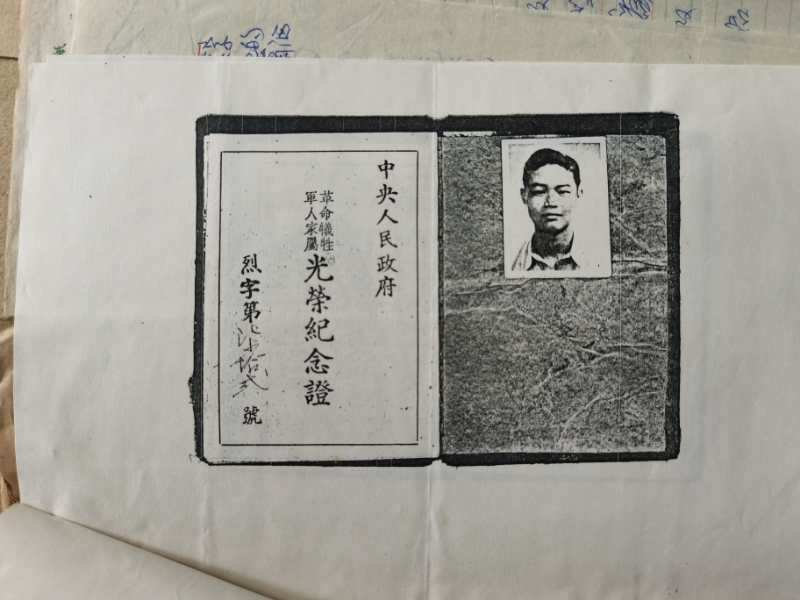 中央人民政府
革命犧牲
軍人家屬
光榮紀念證
烈字第
拾弍號